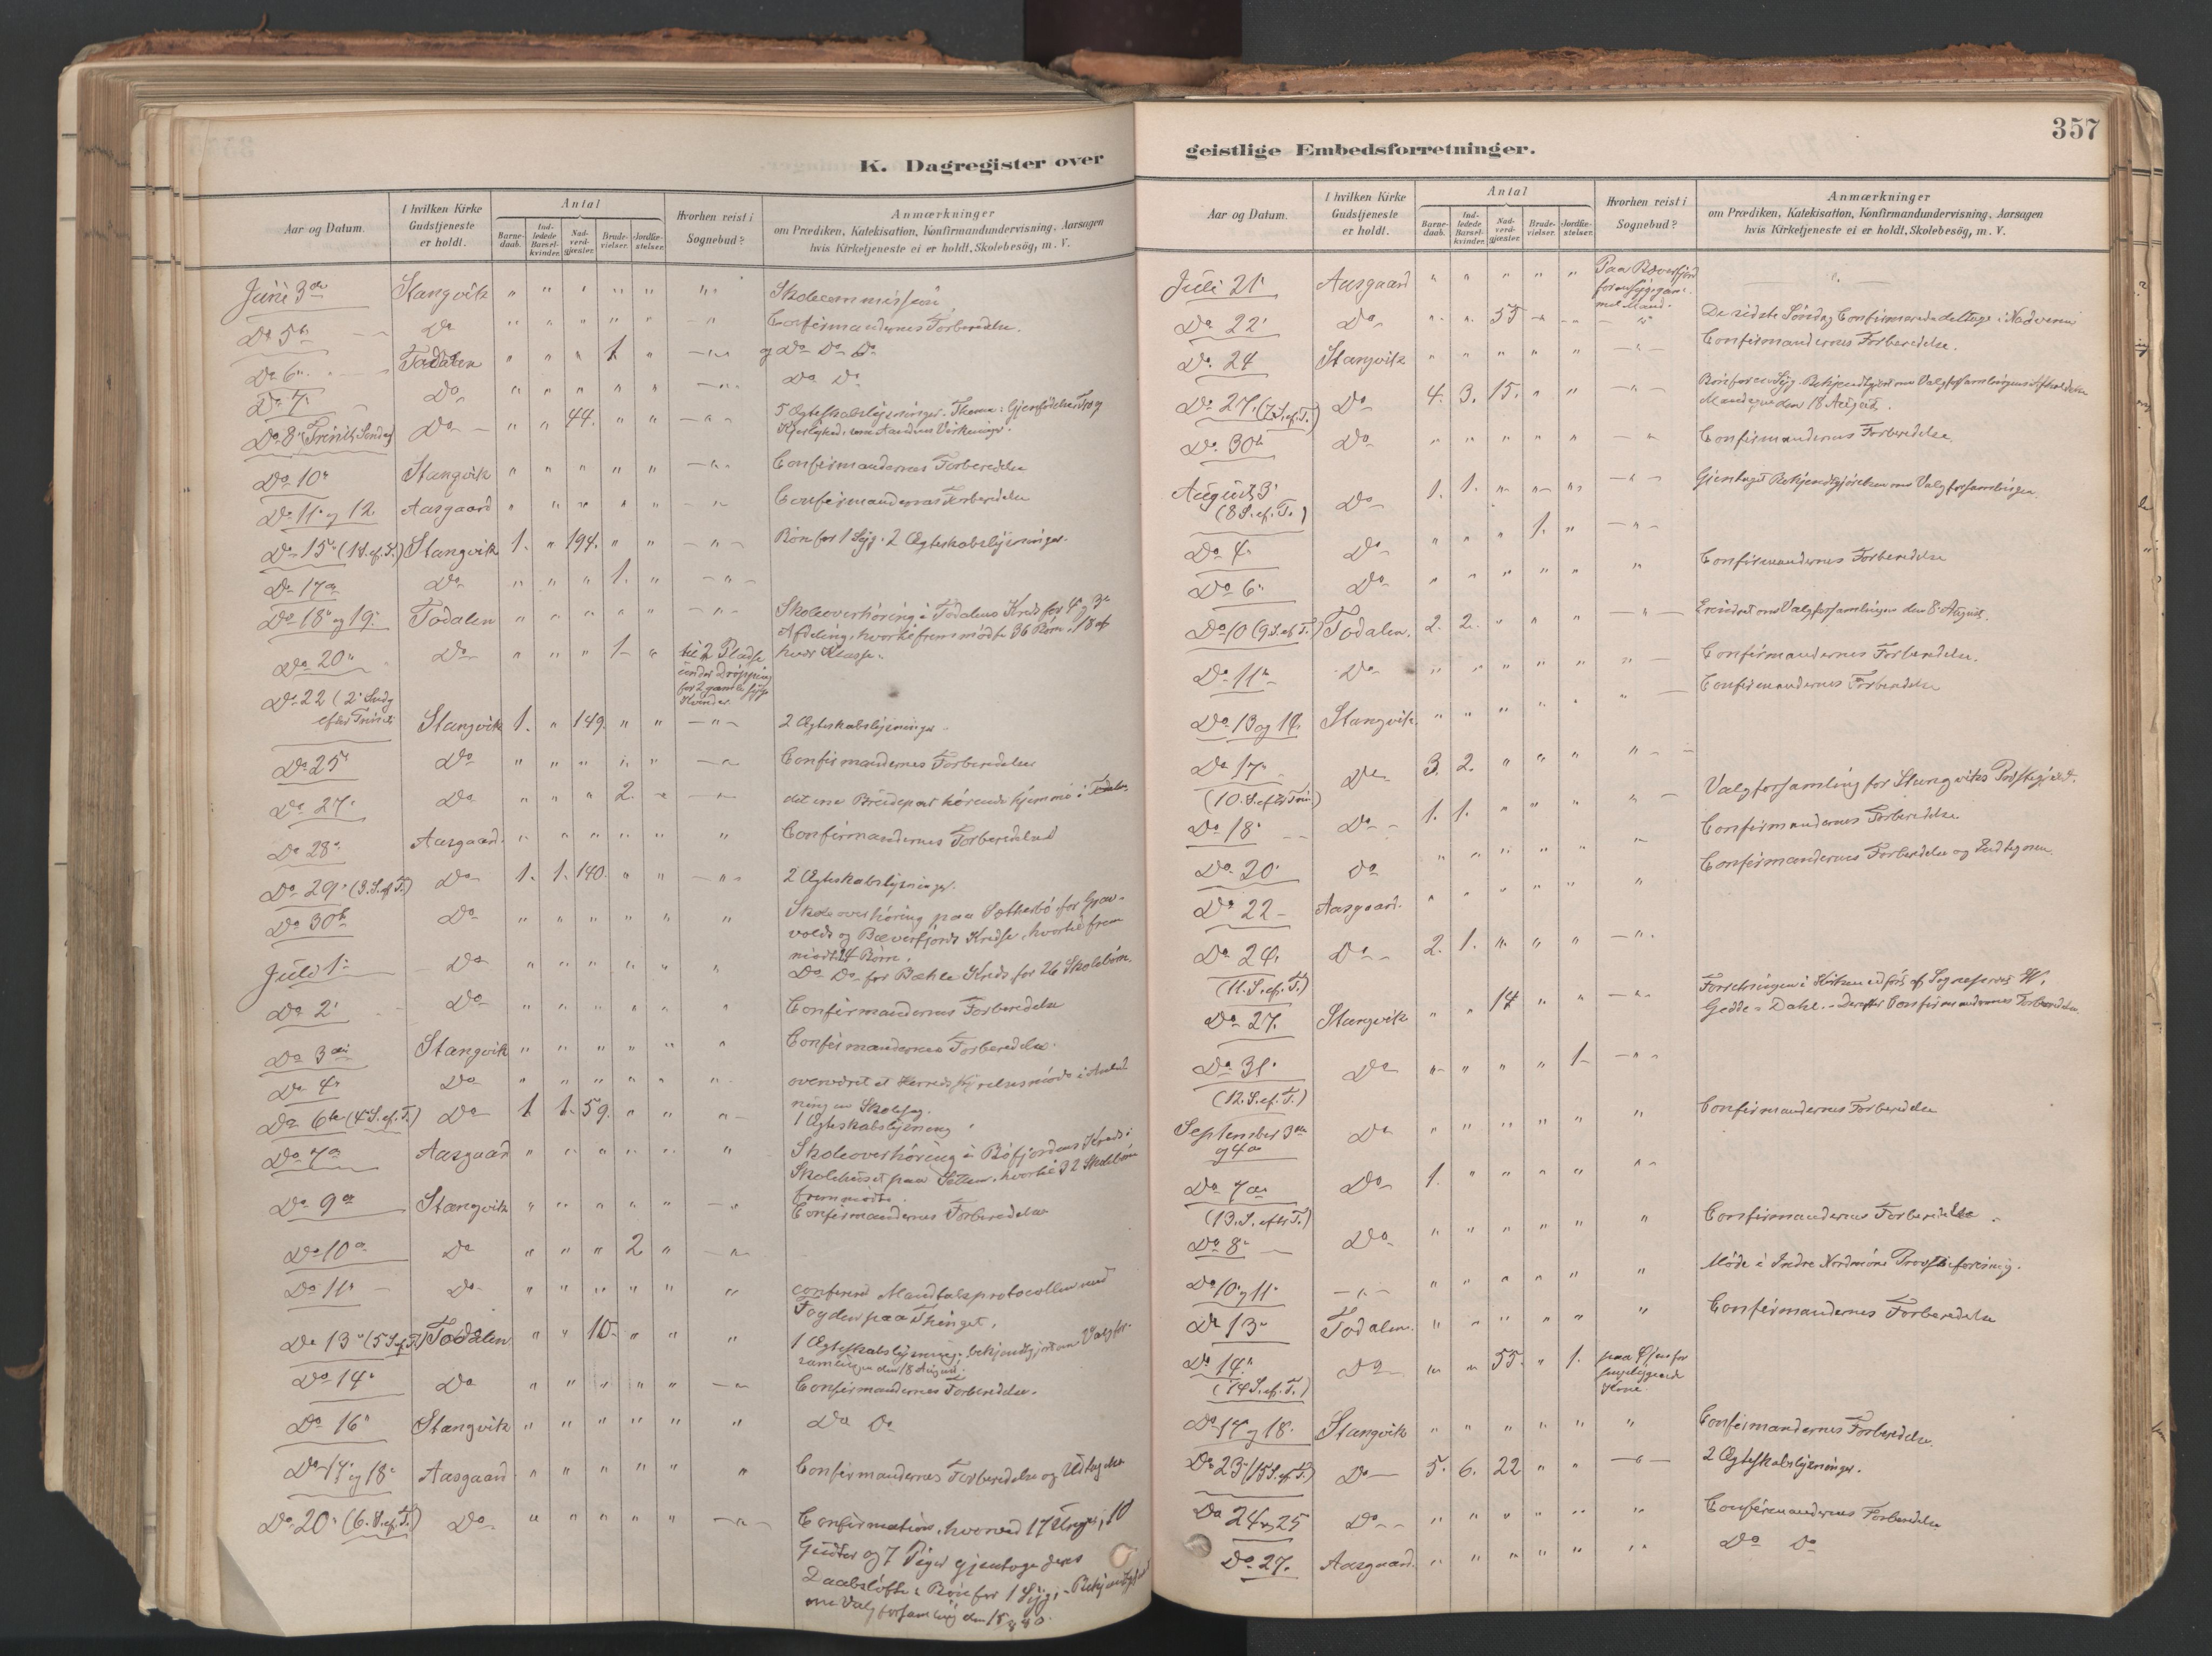 K. Dagregister over
Aar og Datum.
I hvilken Kirke Gudstjeneste er holdt.
Antal
Barnedaab.
Indledede Barselkvinder.
Nadverdgjæster.
Brudevielser.
Jordfæstelser.
Hvorhen reist i Sognebud?
Anmærkninger
om Prædiken, Katekisation, Konfirmandundervisning, Aarsagen
hvis Kirketjeneste ei er holdt, Skolebesög, m. V.
Juni 3die Stangvik " " " " " " Skolecommission
Do 5te Do " " " " " " Confirmandernes Forberedelse.
Do 6te Todalen " " " 1. " " og Do Do Do
Do 7. Do " " " " " " Do Do
Do 8 (Trinit. Søndag) Do " " 44. " " " 5 Ægteskabslysninger. Thema: Gjenfødelse, Tro og
Kjerlighed, som Aandens Virkninger.
Do 10. Stangvik " " " " " " Confirmandernes Forberedelse
Do 11. og 12. Aasgaard " " " " " " Confirmandernes Forberedelse
Do 15. (1 S. ef. T.) Stangvik 1. " 194. " " " Bøn for 1 Syg. 2 Ægteskabslysninger.
Do 17de Do " " " 1. " "
Do 18. og 19. Todalen " " " " " " Skoleoverhøring i Todalens Kreds for 4. og 3.
Afdeling, hvortil fremmødte 36 Børn, 18 af
Do 20. Do " " " 1 " til 2 Pladse hver Klasse.
under
for 2 gamle syge
Kvinder
Do 22 (2. Søndg
efter Trinit. Stangvik 1. " 149. " " " 2 Ægteskabslysninger
Do 25. Do " " " " " " Confirmandernes Forberedelse
Do 27. Do " " " 2. " " det ene Brudepar hørende hjemme i Todalen
Do 28. Aasgaard " " " " " " Confirmandernes Forberedelse
Do 29. (3. S. ef. T.) Do 1. 1. 140. " " " 2 Ægteskabslysninger.
Do 30te Do " " " " " " Skoleoverhøring paa Sætherbø for Grav-
volds og Bæverfjords Kredse, hvortil frem
mødte 24 Børn.
Juli 1. Do " " " " " " Do Do for Bæhle Kreds for 26 Skolebørn.
Do 2. Do " " " " " " Confirmandernes Forberedelse
Do 3die Stangvik " " " " " " Confirmandernes Forberedelse
Do 4. Do " " " " " " overværet et Herredsstyrelsesmøde i Anled
ning en Skolesag.
Do 6te (4. S. ef. T.) Do 1. 1. 59. " " " 1 Ægteskabslysning
Do 7de Aasgaard " " " " " " Skoleoverhøring i Bøfjordens Kreds i
Skolehuset paa Settem, hvortil 32 Skolebørn
fremmødte.
Do 9de Stangvik " " " " " " Confirmandernes Forberedelse
Do 10de Do " " " 2 " "
Do 11te Do " " " " " " confereret Mandtalsprotocollen med
Fogden paa Thinget.
Do 13. (5 S. ef. T.) Todalen " " 10. " " " 1 Ægteskabslysning. bekjendtgjort om Valgfor-
samlingen den 18 August.
Do 14. Do " " " " " " Confirmandernes Forberedelse.
Do 16. Stangvik " " " " " " Do Do
Do 17. og 18. Aasgaard " " " " " " Confirmandernes Forberedelse og Udtagelse
Do 20. (6. S. ef. T.) Do " " " " " " Confirmation, hvorved 17 Unge, 10
Gutter og 7 Piger gjentoge deres
Daabsløfte. Bøn for 1 Syg. - Bekjendtgjort
om Valgforsamling den 18
geistlige Embedsforretninger.
357
Aar og Datum.
I hvilken Kirke Gudstjeneste er holdt.
Antal
Barnedaab.
Indledede Barselkvinder.
Nadverdgjæster.
Brudevielser.
Jordfæstelser.
Hvorhen reist i Sognebud?
Anmærkninger
om Prædiken, Katekisation, Konfirmandundervisning, Aarsagen
hvis Kirketjeneste ei er holdt, Skolebesög, m. V.
Juli 21. Aasgaard " " " " " Paa Bæverfjord
for en syg gam-
mel Mand.
Do 22. Do " " 55 " " " De sidste Søndag Confirmerede deltoge i Nadveren
Do 24 Stangvik " " " " " " Confirmandernes Forberedelse.
Do 27. (7. S. ef. T.) Do 4. 3. 15. " " " Bøn for en Syg. Bekjendtgjort om Valgforsamlingens Afholdelse
Mandag den 18 August.
Do 30te Do " " " " " " Confirmandernes Forberedelse
August 3.
(8 S. ef. T.) Do 1. 1. " " " " Gjentaget Bekjendtgjørelsen om Valgforsamlingen.
Do 4. Do " " " 1. " "
Do 6. Do " " " " " " Confirmandernes Forberedelse
Do 10 (9. S. ef. T.) Todalen. 2. 2. " " " " Erindret om Valgforsamlingen den 18. August.
Do 11te Do " " " " " " Confirmandernes Forberedelse.
Do 13 og 14. Stangvik " " " " " " Confirmandernes Forberedelse
Do 17.
(10. S. efter Trin.) Do 3. 2. " " " "
Do 18. Do 1. 1. " " " " Valgforsamling for Stangviks Præstegjeld.
Do 20. Do " " " " " " Confirmandernes Forberedelse
Do 22 Aasgaard. " " " " " " Confirmandernes Forberedelse og Indtegnen.
Do 24.
(11. S. ef. T.) Do 2. 1. " " " "
Do 27. Stangvik " " 14 " " " Forretningen i Kirken udført af Sognepræst W.
Gedde-Dahl. Derefter Confirmandernes Forberedelse
Do 31.
(12. S. ef. T.) Do " " " " 1 "
September 3die
og 4de Do " " " " " " Confirmandernes Forberedelse
Do 7de
(13. S. efter T.) Do 1. " " " " "
Do 8. Do " " " " " " Confirmandernes Forberedelse
Do 10. og 11. " " " " " " Møde i Indre Nordmøre Provstiforening.
Do 13. Todalen. " " " " " " Confirmandernes Forberedelse
Do 14.
(14 S. ef. T.) Do " " 55. " 1. paa for
sengeliggende
Kone
Do 17 og 18. Stangvik " " " " " " Confirmandernes Forberedelse.
Do 23. (15 S. ef. T.) Do 5. 6. 22 " " " 2 Ægteskabslysninger.
Do 24 og 25 Do " " " " " " Confirmandernes Forberedelse
Do 27. Aasgaard. " " " " " " Do Do